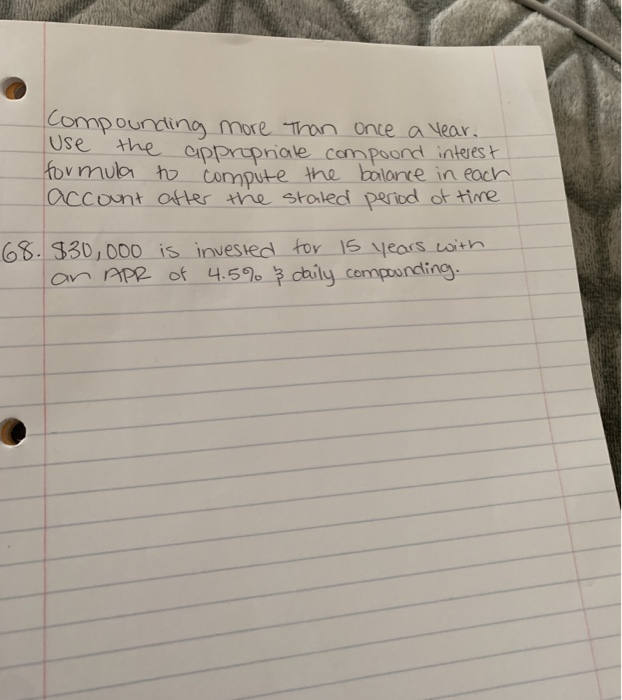 Compounding more Than once a Year.
Use the appropriate compoond interest
formula to compute the balance in each
account after the stated period of time
68. $30,000 is invested for 15 years with
an APR of 4.5% & daily compounding.